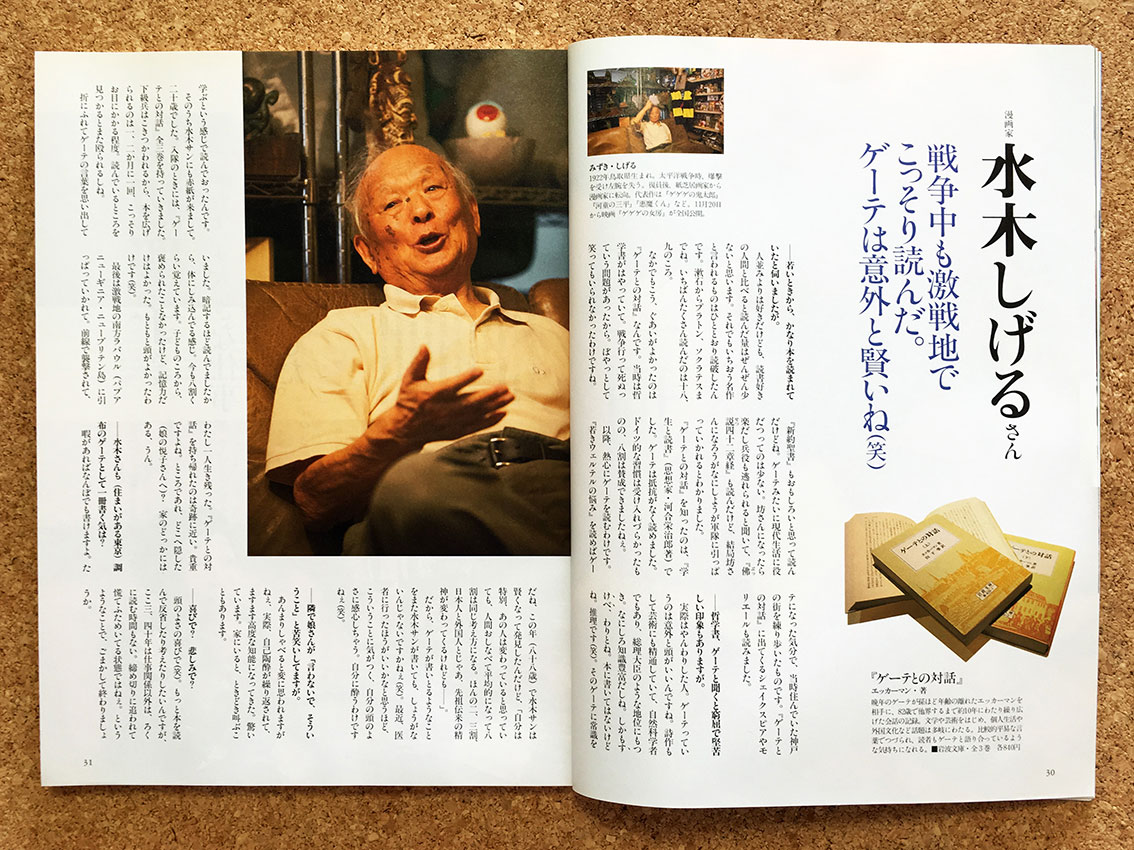 漫画家
水木しげるさん
戦争中も激戦地で
こっそり読んだ。
ゲーテは意外と賢いね(笑)
みずき・しげる
1922年鳥取県生まれ。太平洋戦争時、爆撃
を受け左腕を失う。復員後、紙芝居画家から
漫画家に転向。代表作は『ゲゲゲの鬼太郎』
『河童の三平』『悪魔くん』など。11月20日
から映画『ゲゲゲの女房』が全国公開。
——若いときから、かなり本を読まれて
いたと伺いましたが。
人並みよりは好きだけども、読書好き
の人間と比べると読んだ量はぜんぜん少
ないと思います。それでもいちおう名作
と言われるものはひととおり読破したん
です。漱石からプラトン、ソクラテスま
でね。いちばんたくさん読んだのは十八、
九のころ。
なかでもこう、ぐあいがよかったのは
『ゲーテとの対話』なんです。当時は哲
学書がはやっていて、戦争行って死ぬっ
ていう問題があったから。ぼやっとして
笑ってもいられなかったわけですね。
『新約聖書』もおもしろいと思って読ん
だけどね。ゲーテみたいに現代生活に役
だつってのは少ない。坊さんになったら
楽だし兵役も逃れられると聞いて、『佛
説四十二章経』も読んだけど、結局坊さ
んになろうがなにしようが軍隊に引っぱ
っていかれるとわかりました。
『ゲーテとの対話』を知ったのは、『学
生と読書』(思想家・河合栄治郎著)で
した。ゲーテは抵抗がなく読めました。
ドイツ的な習慣は受け入れづらかったも
のの、八割は賛成できましたねぇ。
以降、熱心にゲーテを読むわけです。
『若きウェルテルの悩み』を読めばゲー
テになった気分で、当時住んでいた神戸
の街を練り歩いたものです。『ゲーテと
の対話』に出てくるシェイクスピアやモ
リエールも読みました。
——哲学書、ゲーテと聞くと窮屈で堅苦
しい印象もあります。
実際はやんわりした人。ゲーテってい
うのは意外と頭がいいんですね。詩作も
して芸術にも精通していて、自然科学者
でもあり、総理大臣のような地位にもつ
き、なにしろ知識豊富だしね。しかもす
けべ、わりとね。本に書いてはないけど
ね。推理です(笑)。そのゲーテに常識を
『ゲーテとの対話』
エッカーマン・著
晩年のゲーテが孫ほど年齢の離れたエッカーマンを
相手に、83歳で他界するまで約10年にわたり繰り広
げた会話の記録。文学や芸術をはじめ、個人生活や
外国文化など話題は多岐にわたる。比較的平易な言
葉でつづられ、読者もゲーテと語り合っているよう
な気持ちになれる。■岩波文庫・全3巻 各840円
30
学ぶという感じで読んでおったんです。
そのうち水木サンにも赤紙が来まして。
二十歳でした。入隊のときには、『ゲー
テとの対話』全三巻を持っていきました。
下級兵はこきつかわれるから、本を広げ
られるのは一、二か月に一回、こっそり
お目にかかる程度。読んでいるところを
見つかるとまた殴られるしね。
折にふれてゲーテの言葉を思い出して
いました。暗記するほど読んでましたか
ら、体にしみ込んでる感じ。今も八割く
らい覚えています。子どものころから、
褒められたことなかったけど、記憶力だ
けはよかった。もともと頭がよかったわ
けです(笑)。
最後は激戦地の南方ラバウル(パプア
ニューギニア・ニューブリテン島)に引
っぱっていかれて、前線で襲撃されて、
わたし一人生き残った。『ゲーテとの対
話』を持ち帰れたのは奇跡に近い。貴重
ですよね。ところであれ、どこへ隠した
(娘の悦子さんへ)? 家のどっかには
ある、うん。
——水木さんも(住まいがある東京)調
布のゲーテとして一冊書く気は?
暇があればなんぼでも書けますよ。た
だね、この年(八十八歳)で水木サンは
賢くなって発見したんだけど、「自分は
特別、あの人は変わっていると思ってい
ても、人間おしなべて平均的になって八
割は同じ考え方になる。ほんの二、三割、
日本人と外国人とじゃあ、先祖伝来の精
神が変わってくるけども」
だから、ゲーテが書いとるようなこと
をまた水木サンが書いても、しょうがな
いんじゃないですかねぇ(笑)。最近、医
者に行ったほうがいいかなと思うほど、
こういうことに気がつく、自分の頭のよ
さに感心しちゃう。自分に酔うわけです
ねぇ(笑)。
——隣で娘さんが、「言わないで、そうい
うこと」と苦笑いしてますが。
あんまりしゃべると変に思われますが
ねぇ、実際、自己陶酔が繰り返されて、
ますます高度な知能になってきた。驚い
ています。家にいると、ときどき叫ぶこ
ともあります。
——喜びで? 悲しみで?
頭のよさの喜びで(笑)。もっと本を読
んで反省したり考えたりしたいんですが、
ここ三、四十年は仕事関係以外は、ろく
に読む時間もない。締め切りに追われて
慌てふためいてる状態ではねぇ。という
ようなことで、ごまかして終わりましょ
うか。
31